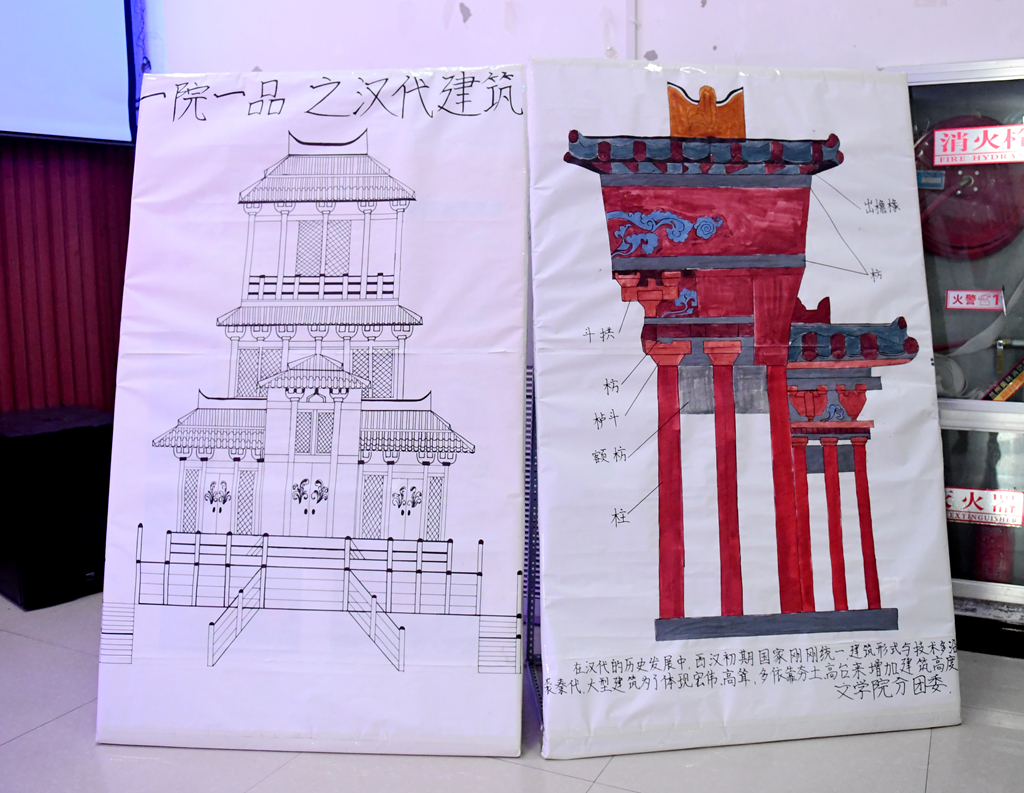 一院一品 之汉代建筑
出檐椽
枋
斗拱
枋
栌斗
额枋
柱
在汉代的历史发展中,西汉初期国家刚刚统一建筑形式与技术多沿
袭秦代,大型建筑为了体现宏伟、高耸,多依靠夯土高台来增加建筑高度
文学院分团委.
消火栓
FIRE HYDRA
火警 1
火器
EXTINGUISHER